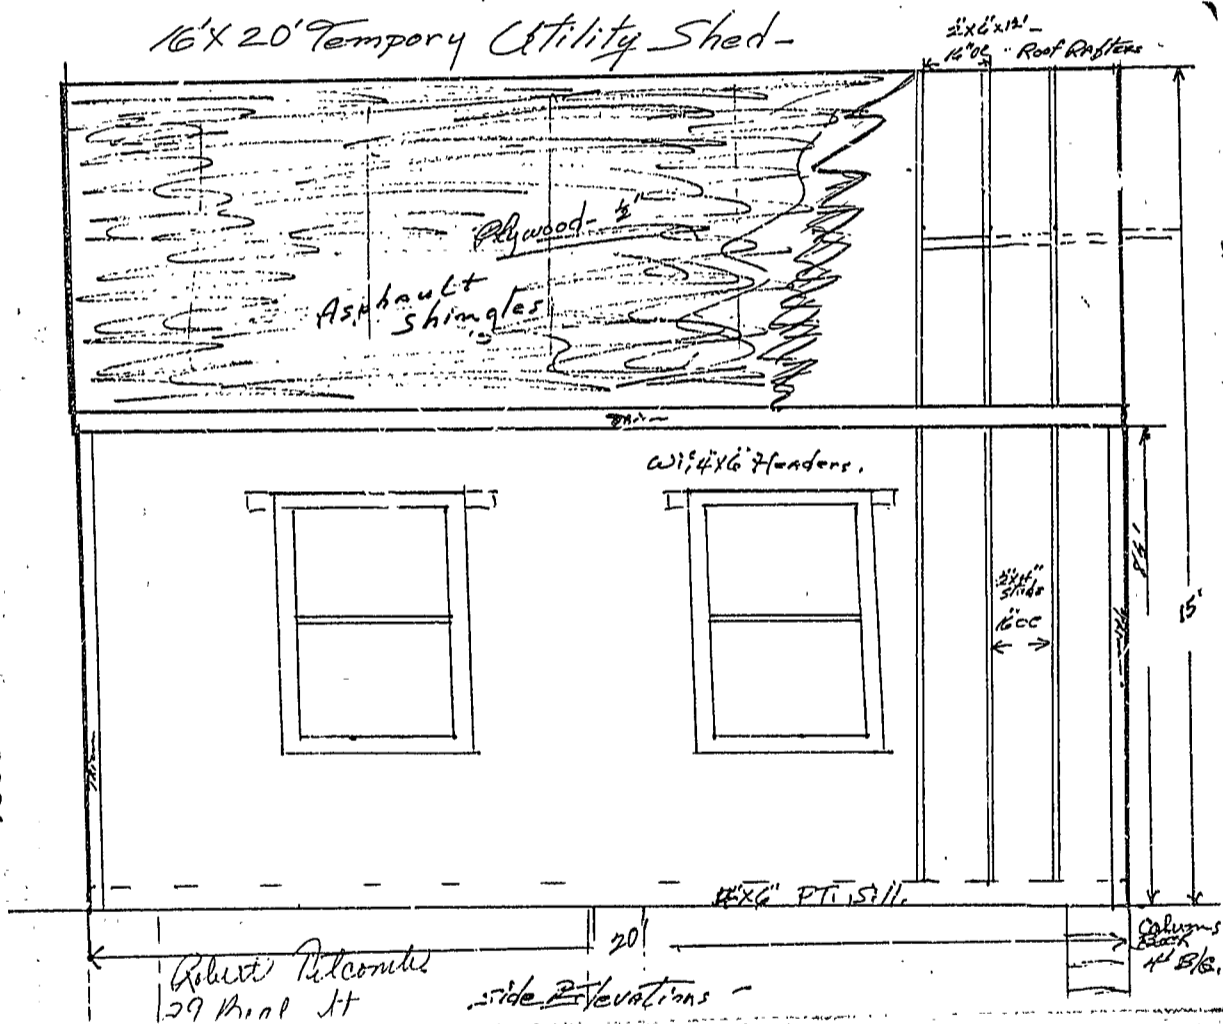 16'X20' Tempory Utility Shed-
2"X6"X12'-
16"OC - Roof Rafters
Plywood- 1/2"
Asphault
Shingles
Trim
Wi, 4"X6" Headers.
2"X4"
Studs
16"OC
8'
15'
Trim
X6" PT. Sill.
20'
Columns
4' B/G.
Robert
29 St
Side Elevations -